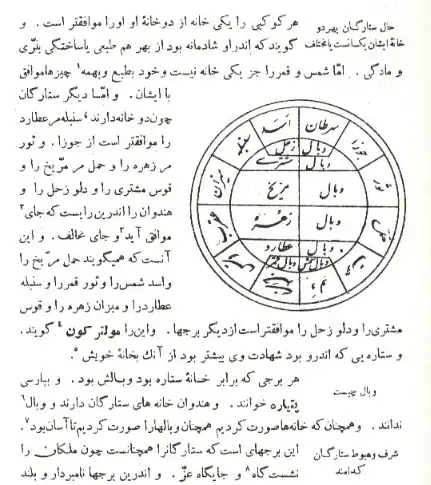 حال ستارگان بهردو
خانهٔ ایشان یکسانست یامختلف
هر کوکبی را یکی خانه از دوخانهٔ او اورا موافقتر است . و
گویند که اندر او شادمانه بود از بهر هم طبعی یاساختگی بنرّی
و مادگی . امّا شمس و قمر را جز یکی خانه نیست وخود بطبع و بهمه¹ چیزها موافق
با ایشان . و امّا دیگر ستارگان
چون دو خانه دارند، سنبله مر عطارد
را موافقتر است از جوزا . و ثور
مر زهره را و حمل مر مرّیخ را و
قوس مشتری را و دلو زحل را و
هندوان را اندرین رایست که جای²
موافق آید³ و جای مخالف . و این
آنست که همیگویند حمل مرّیخ را
واسد شمس را و ثور قمر را و سنبله
عطاردرا و میزان زهره را و قوس
سرطان
اسد
جوزا
سنبله
ثور
میزان
حمل
زحل
وبال
مشتری
وبال
مریخ
وبال
زهره
وبال
عطارد
وبال
مشتری را ودلو زحل را موافقتر است از دیگر برجها . و این را مولتر کون⁴ گویند .
و ستاره یی که اندرو بود شهادت وی بیشتر بود از آنك بخانهٔ خویش⁵ .
وبال چیست
هر برجی که برابر خانهٔ ستاره بود وبالش بود . و بپارسی
پتیاره خوانند . و هندوان خانه های ستارگان دارند و وبال⁶
ندانند . و همچنان که خانه‌ها صورت کردیم همچنان وبالهارا صورت کردیم تا آسان بود⁷.
شرف وهبوط ستارگان
کدامند
این برجهای است که ستارگانرا همچنانست چون ملکان را
نشست گاه⁸ و جایگاه عزّ . و اندرین برجها نامبردار و بلند